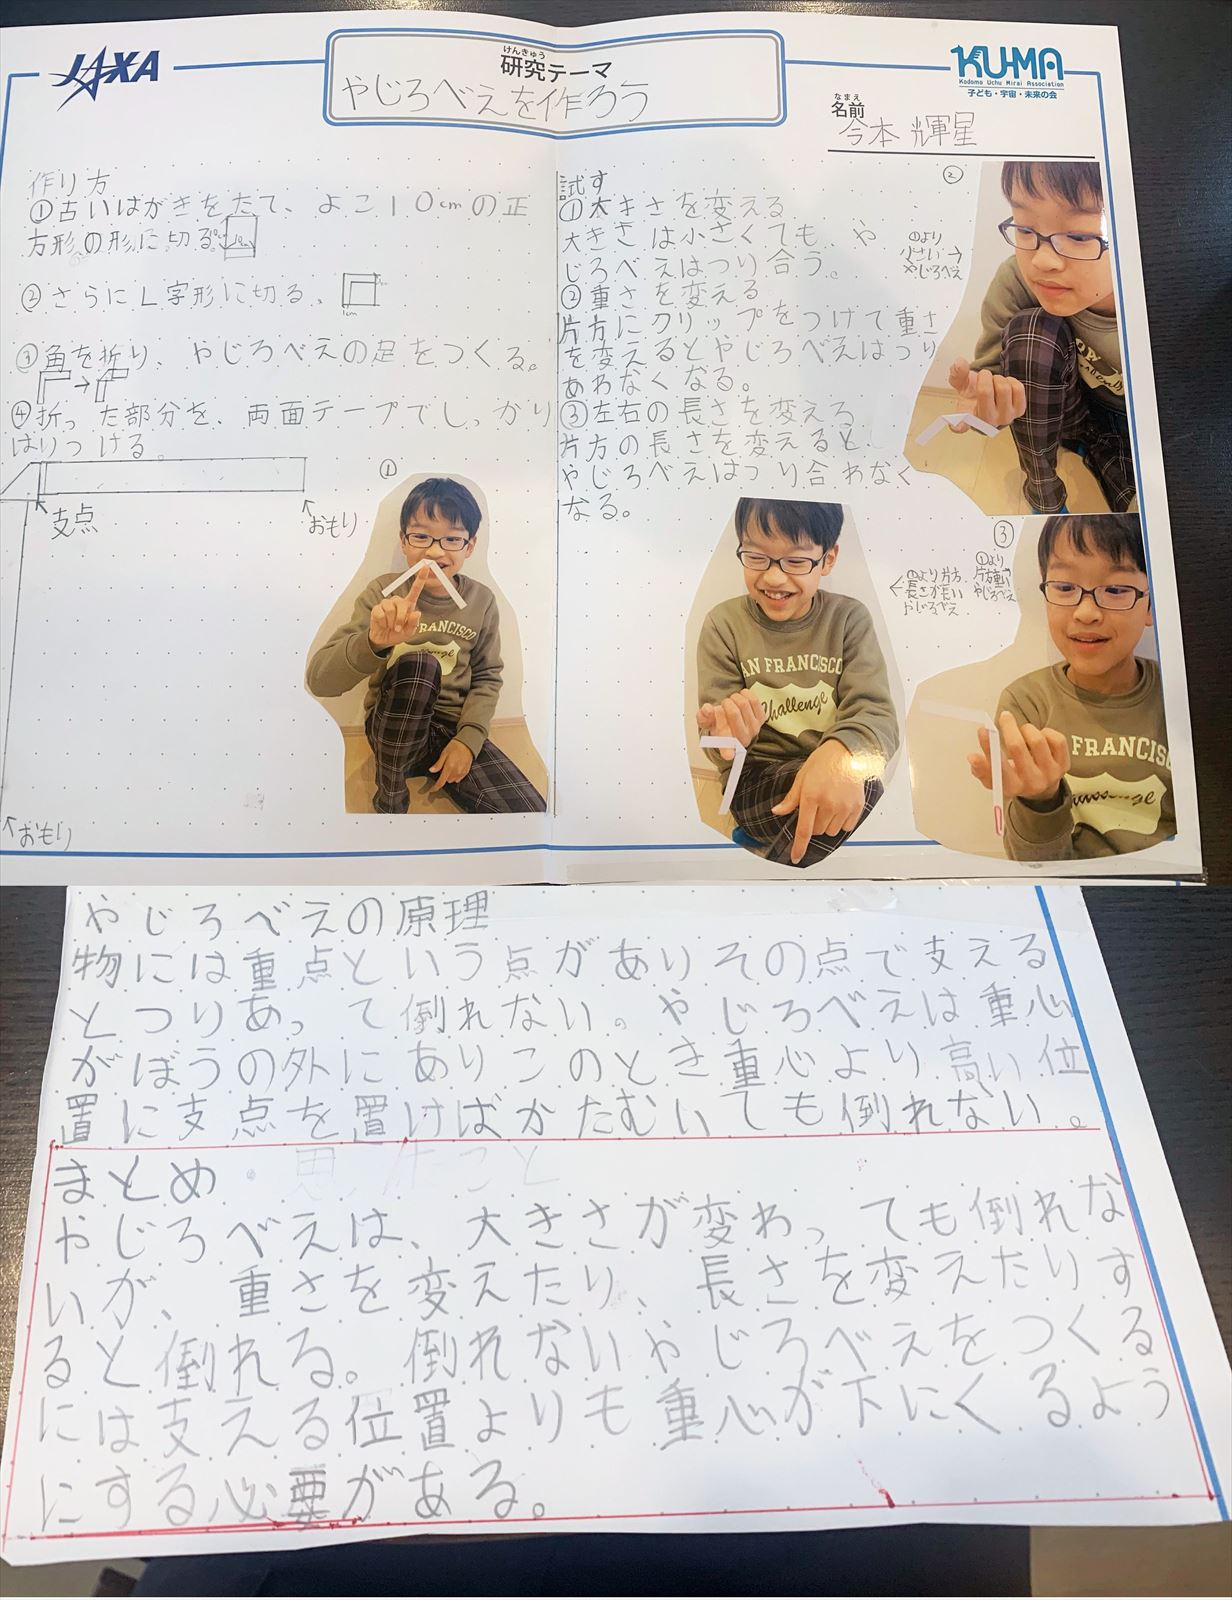 JAXA
けんきゅう
研究テーマ
やじろべえを作ろう
KU-MA
Kodomo Uchu Mirai Association
子ども・宇宙・未来の会
なまえ
名前
今本 輝星
作り方
①古いはがきをたて、よこ10cmの正
方形の形に切る。
②さらにL字形に切る。
1cm
③角を折り、やじろべえの足をつくる。
④折った部分を、両面テープでしっかり
はりつける。
支点
おもり
おもり
①
試す
①大きさを変える
大きさは小さくても、や
じろべえはつり合う。
②重さを変える
片方にクリップをつけて重さ
を変えるとやじろべえはつり
あわなくなる。
③左右の長さを変える
片方の長さを変えると
やじろべえはつり合わなく
なる。
②
①より
小さい→
やじろべえ
③
①より
片方重い
やじろべえ
①より片方
長さが長い
やじろべえ
SAN FRANCISCO
Challenge
やじろべえの原理
物には重点という点がありその点で支える
とつりあって倒れない。やじろべえは重心
がぼうの外にありこのとき重心より高い位
置に支点を置けばかたむいても倒れない。
まとめ・思ったこと
やじろべえは、大きさが変わっても倒れな
いが、重さを変えたり、長さを変えたりす
ると倒れる。倒れないやじろべえをつくる
には支える位置よりも重心が下にくるよう
にする必要がある。